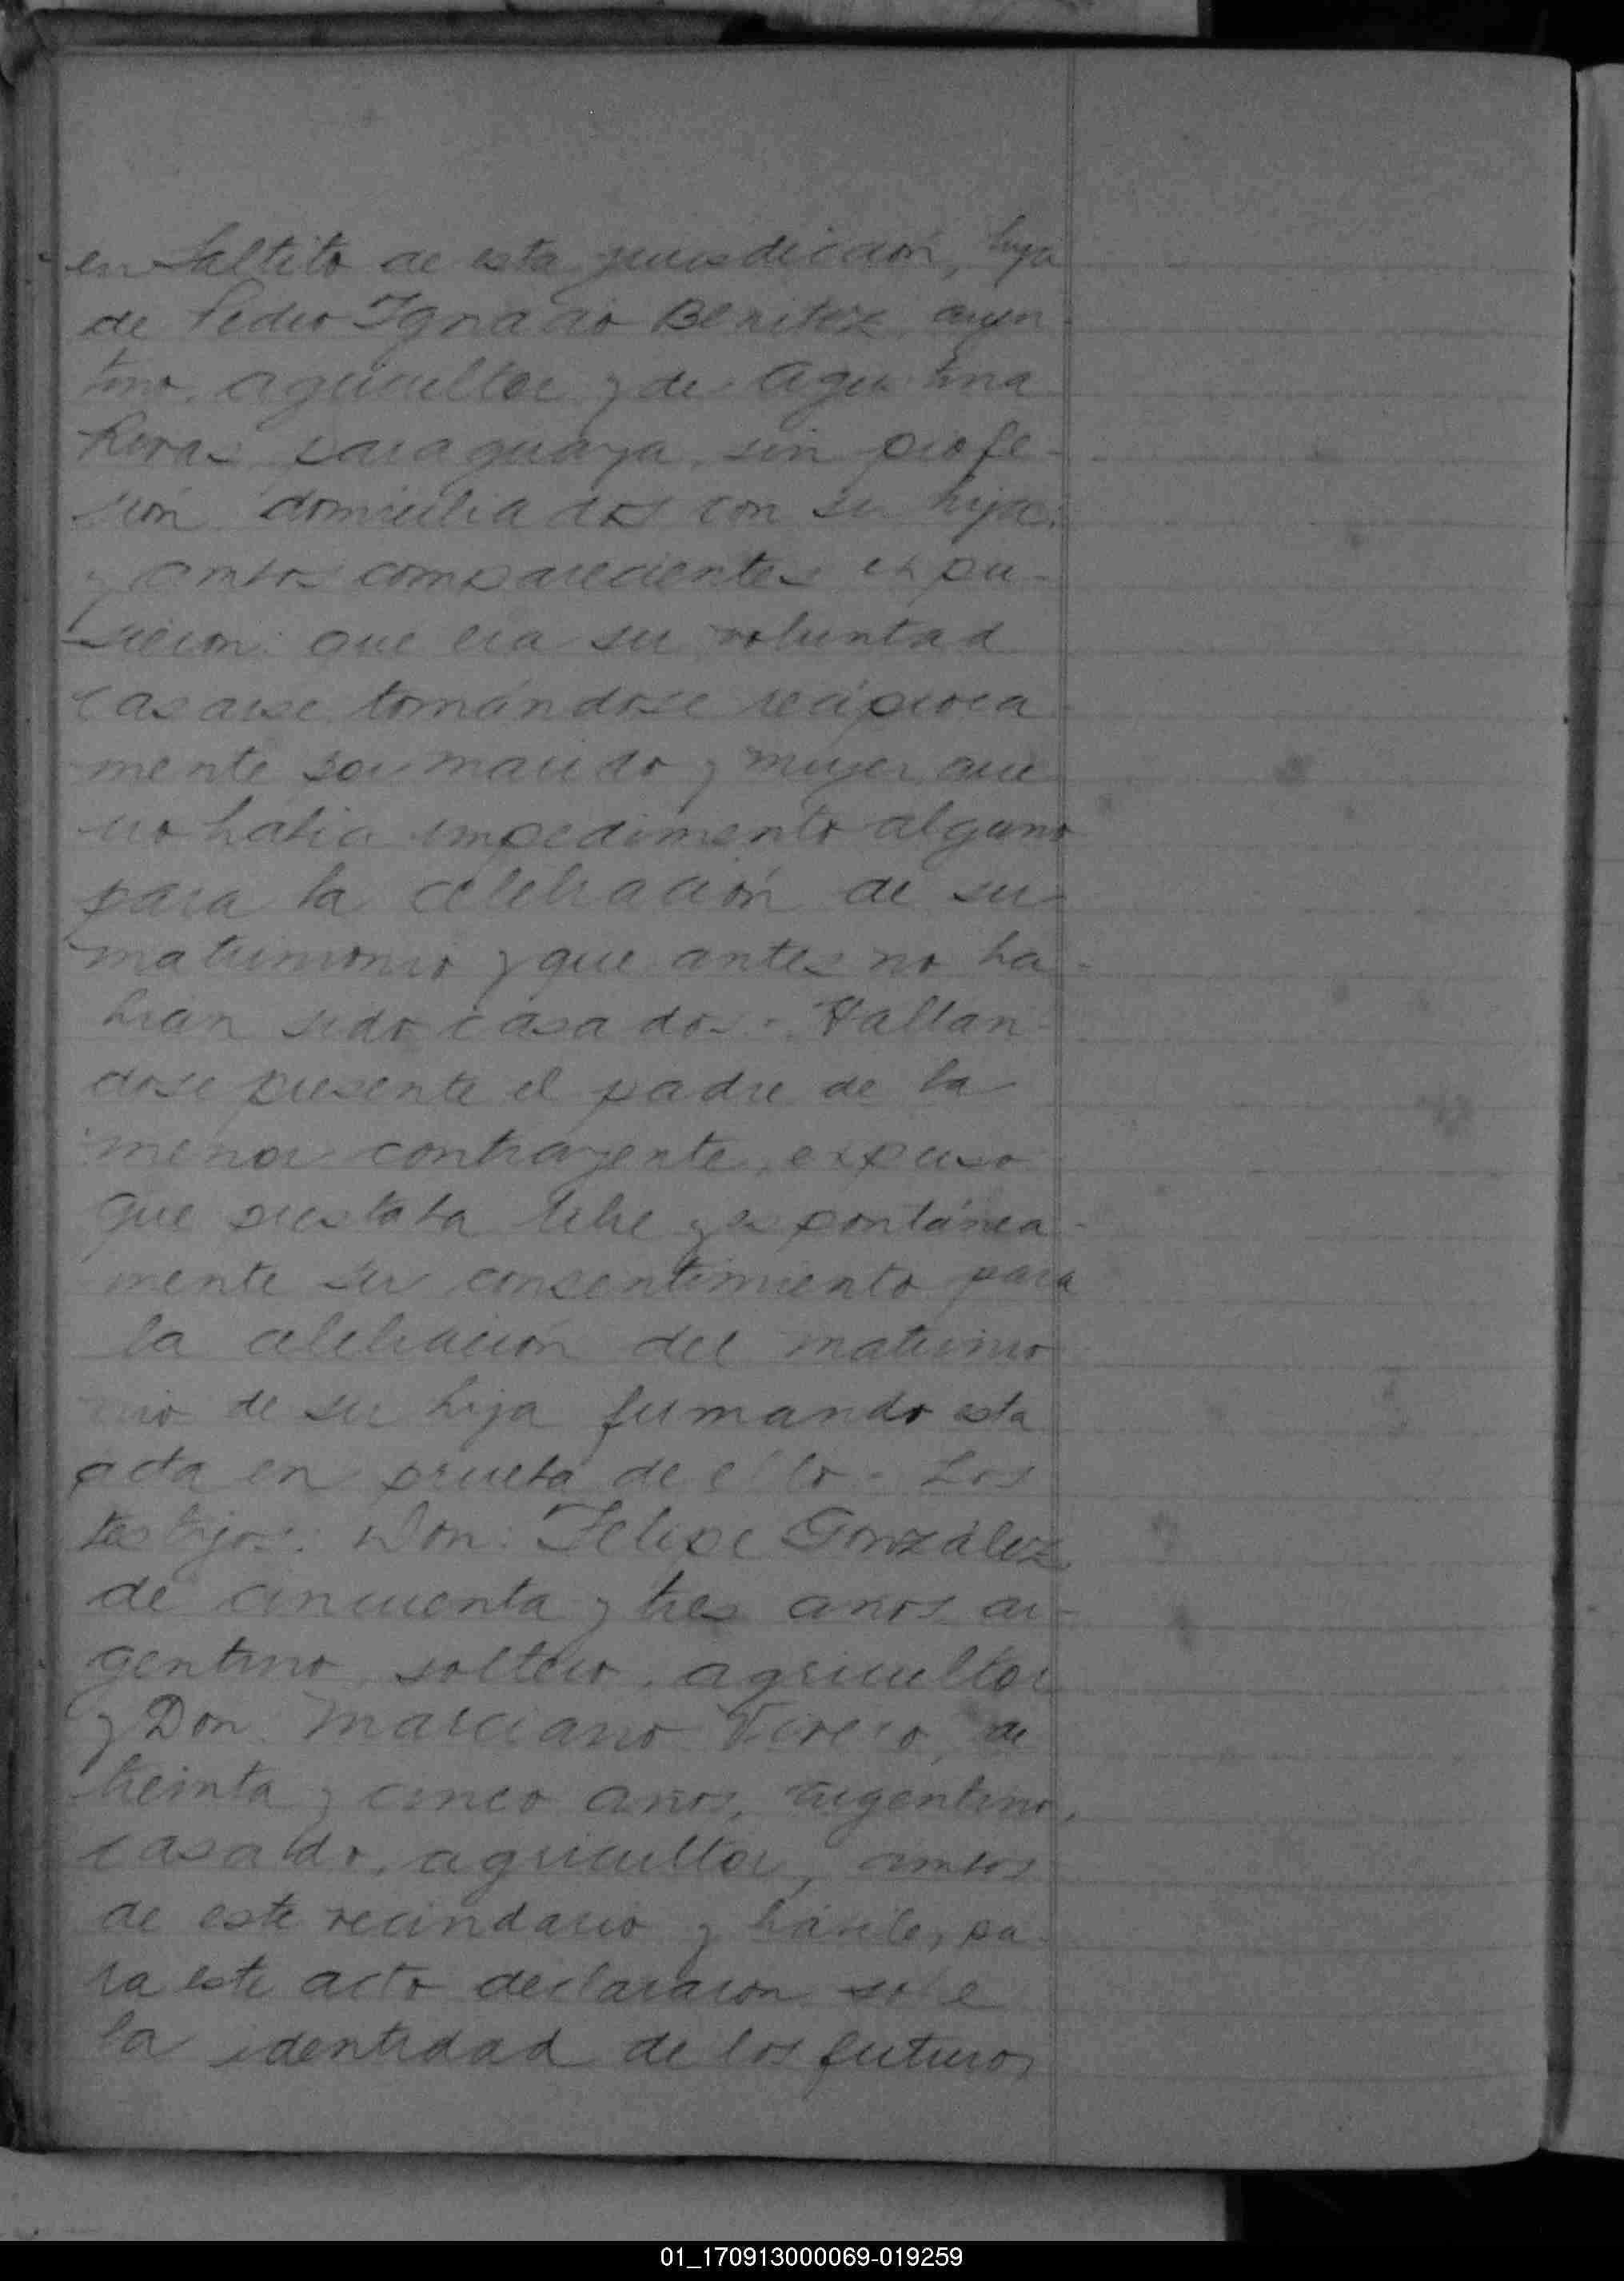 en Saltito de esta jurisdicción, hija
de Pedro Ignacio Benitez, argen-
tino, agricultor y de Agustina
paraguaya, sin profe-
sión domiciliados con su hija;
y ambos comparecientes expu-
sieron: que era su voluntad
casarse tomándose reciproca
mente por marido y mujer que
no habia impedimento alguno
para la celebración de su
matrimonio y que antes no ha-
bian sido casados.- Hallan
dose presente el padre de la
menor contrayente, expuso
que prestaba libre y espontánea-
mente su consentimiento para
la celebración del matrimo
nio de su hija firmando esta
acta en prueba de ello.- Los
testigos: Don: Felipe González
de cincuenta y tres anos ar-
gentino, soltero, agricultor
y Don Marciano de
treinta y cinco años, argentino,
casado, agricultor, ambos
de este vecindario y hábiles pa-
ra este acto declararon sobre
la identidad de los futuros
01_170913000069-019259